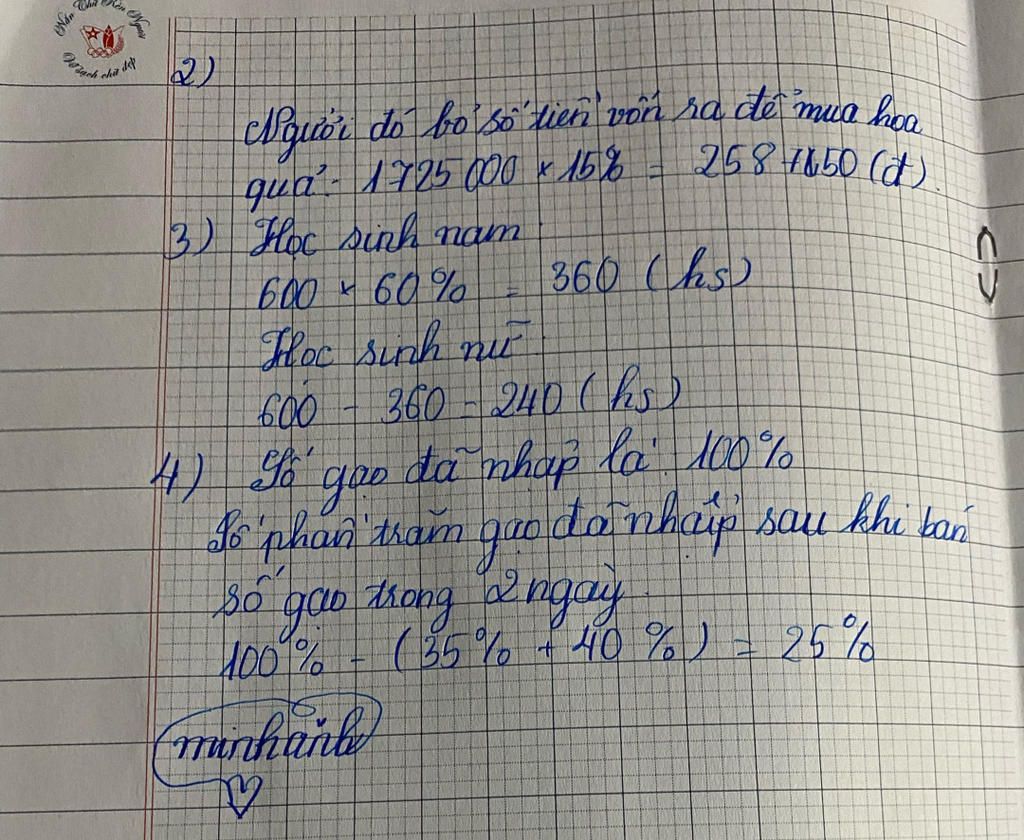 Nắn Chữ Rèn Người
Vở sạch chữ đẹp
2)
Người đó bỏ số tiền vốn ra để mua hoa
quả: 1725 000 × 15% = 258 750 (đ)
3) Học sinh nam:
600 × 60% = 360 (hs)
Học sinh nữ:
600 - 360 = 240 (hs)
4) Số gạo đã nhập là: 100%
Số phần trăm gạo đã nhập sau khi bán
số gạo trong 2 ngày:
100% - (35% + 40%) = 25%
minhanh